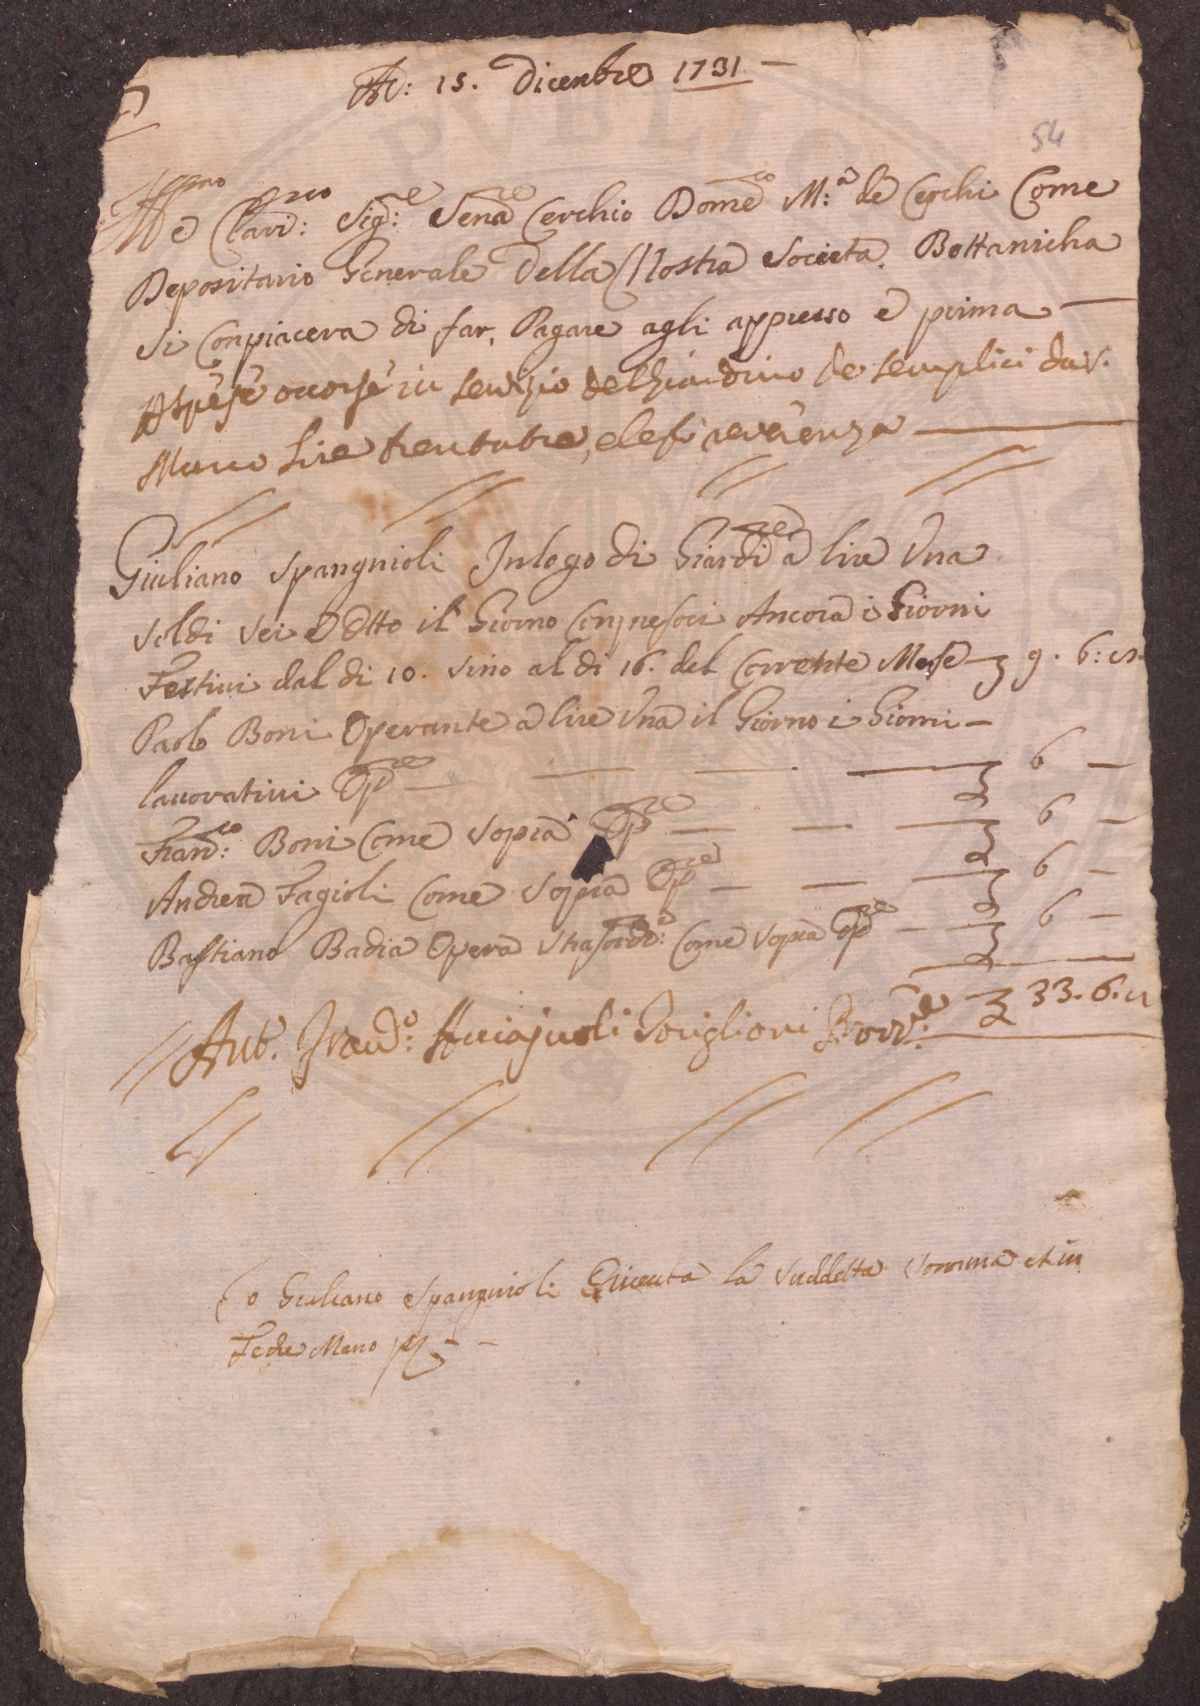 Adì: 15. Dicenbre 1731
54
Ill.mo e Clari:mo Sig:re Sen.re Cerchio Dome.co M:a de Cerchi Come
Depositario Generale della Nostra Società Bottanicha
si Conpiacerà di far Pagare agli appresso e prima
A spese occorse in servizio del Giardino de semplici da S.
Marco Lire trentatre, e le fo reverenza
Giuliano Spangnioli In logo di Giard.re a lire Una
soldi sei e Otto il Giorno Conpresoci Ancora i Giorni
Festivi dal di 10. sino al di 16. del Corrente Mese 9. 6:
Paolo Boni Operante a lire Una il Giorno i Giorni
lavorativi Op.re 6
Fran:co Boni Come sopra Op.re 6
Andrea Fagioli Come sopra Op.re 6
Bastiano Badia Opera strasord:a Come sopra Op.re 6
33. 6.
Ant. Frand:o Acciajuoli Provv:e
Io Giuliano Spangnioli Riceuta la suddetta somma et in
Fede Mano